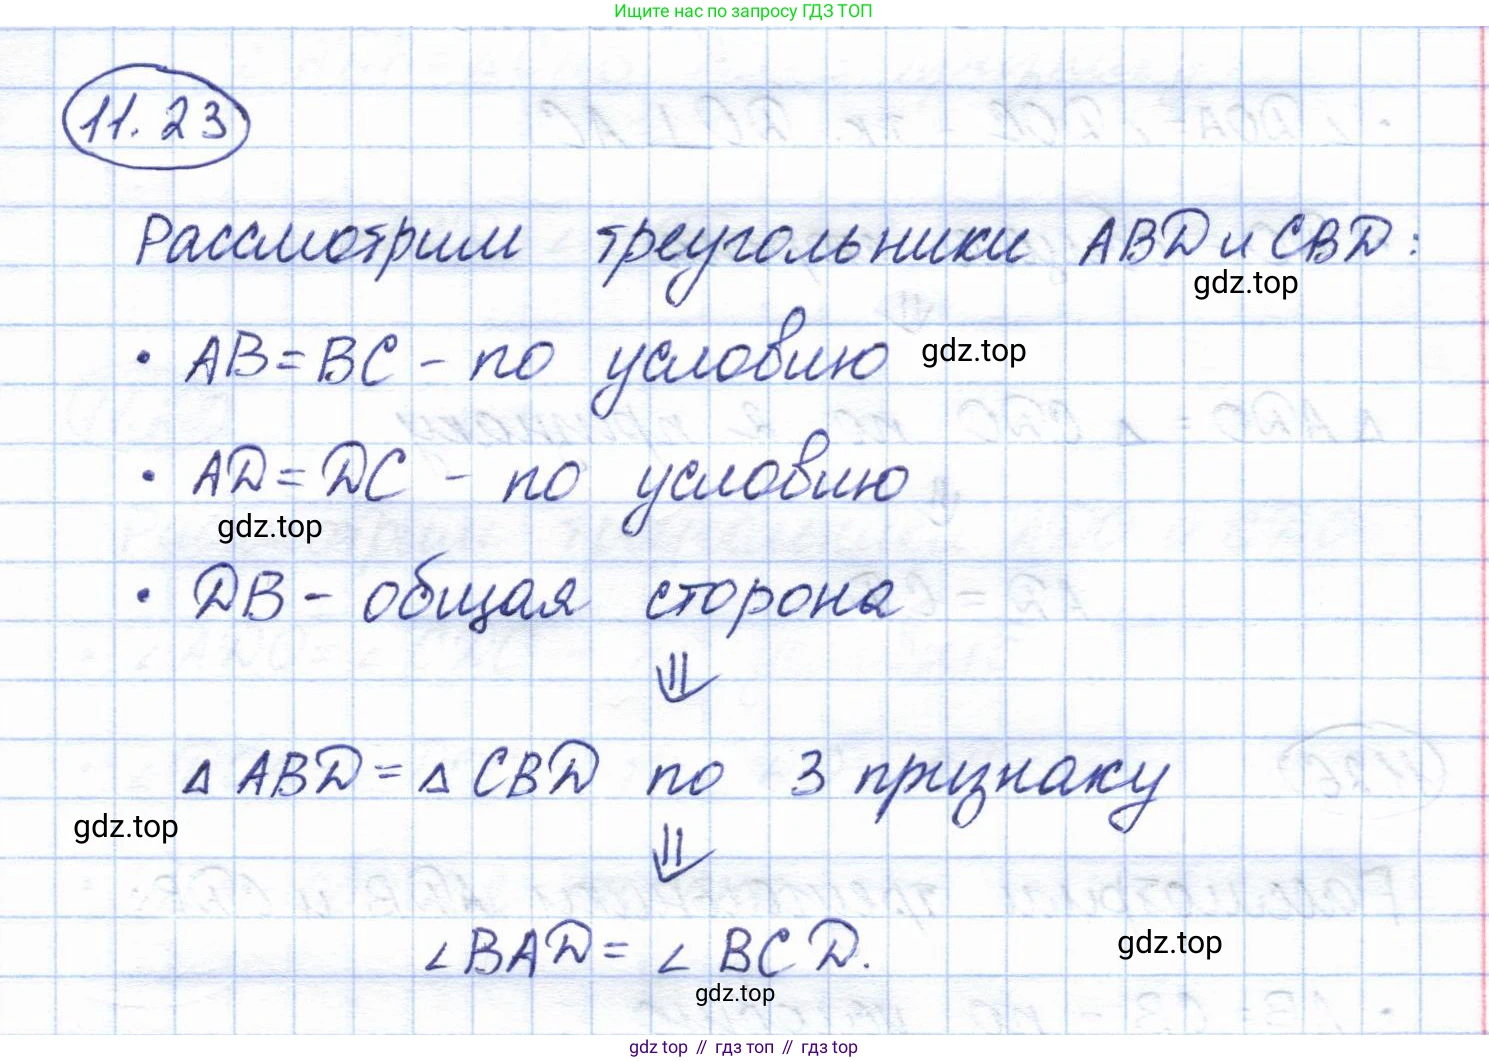 Ищите нас по запросу ГДЗ ТОП
11.23
Рассмотрим треугольники ABD и CBD:
gdz.top
• AB = BC - по условию gdz.top
• AD = DC - по условию
gdz.top
• DB - общая сторона
⇓
△ ABD = △ CBD по 3 признаку
gdz.top
⇓
∠BAD = ∠ BCD.
gdz.top
gdz.top
gdz top // гдз топ // gdz top